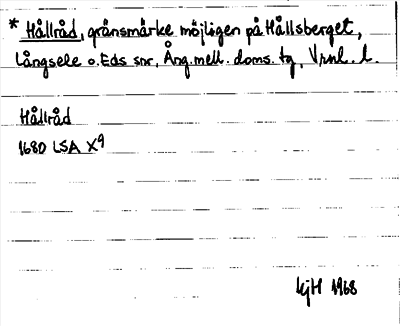 * Hållråd, gränsmärke möjligen på Hållsberget,
Långsele o. Eds snr, Ång. mell. doms. tg, Vrnl. l.
Hållråd
1680 LSA X9
kjH 1968